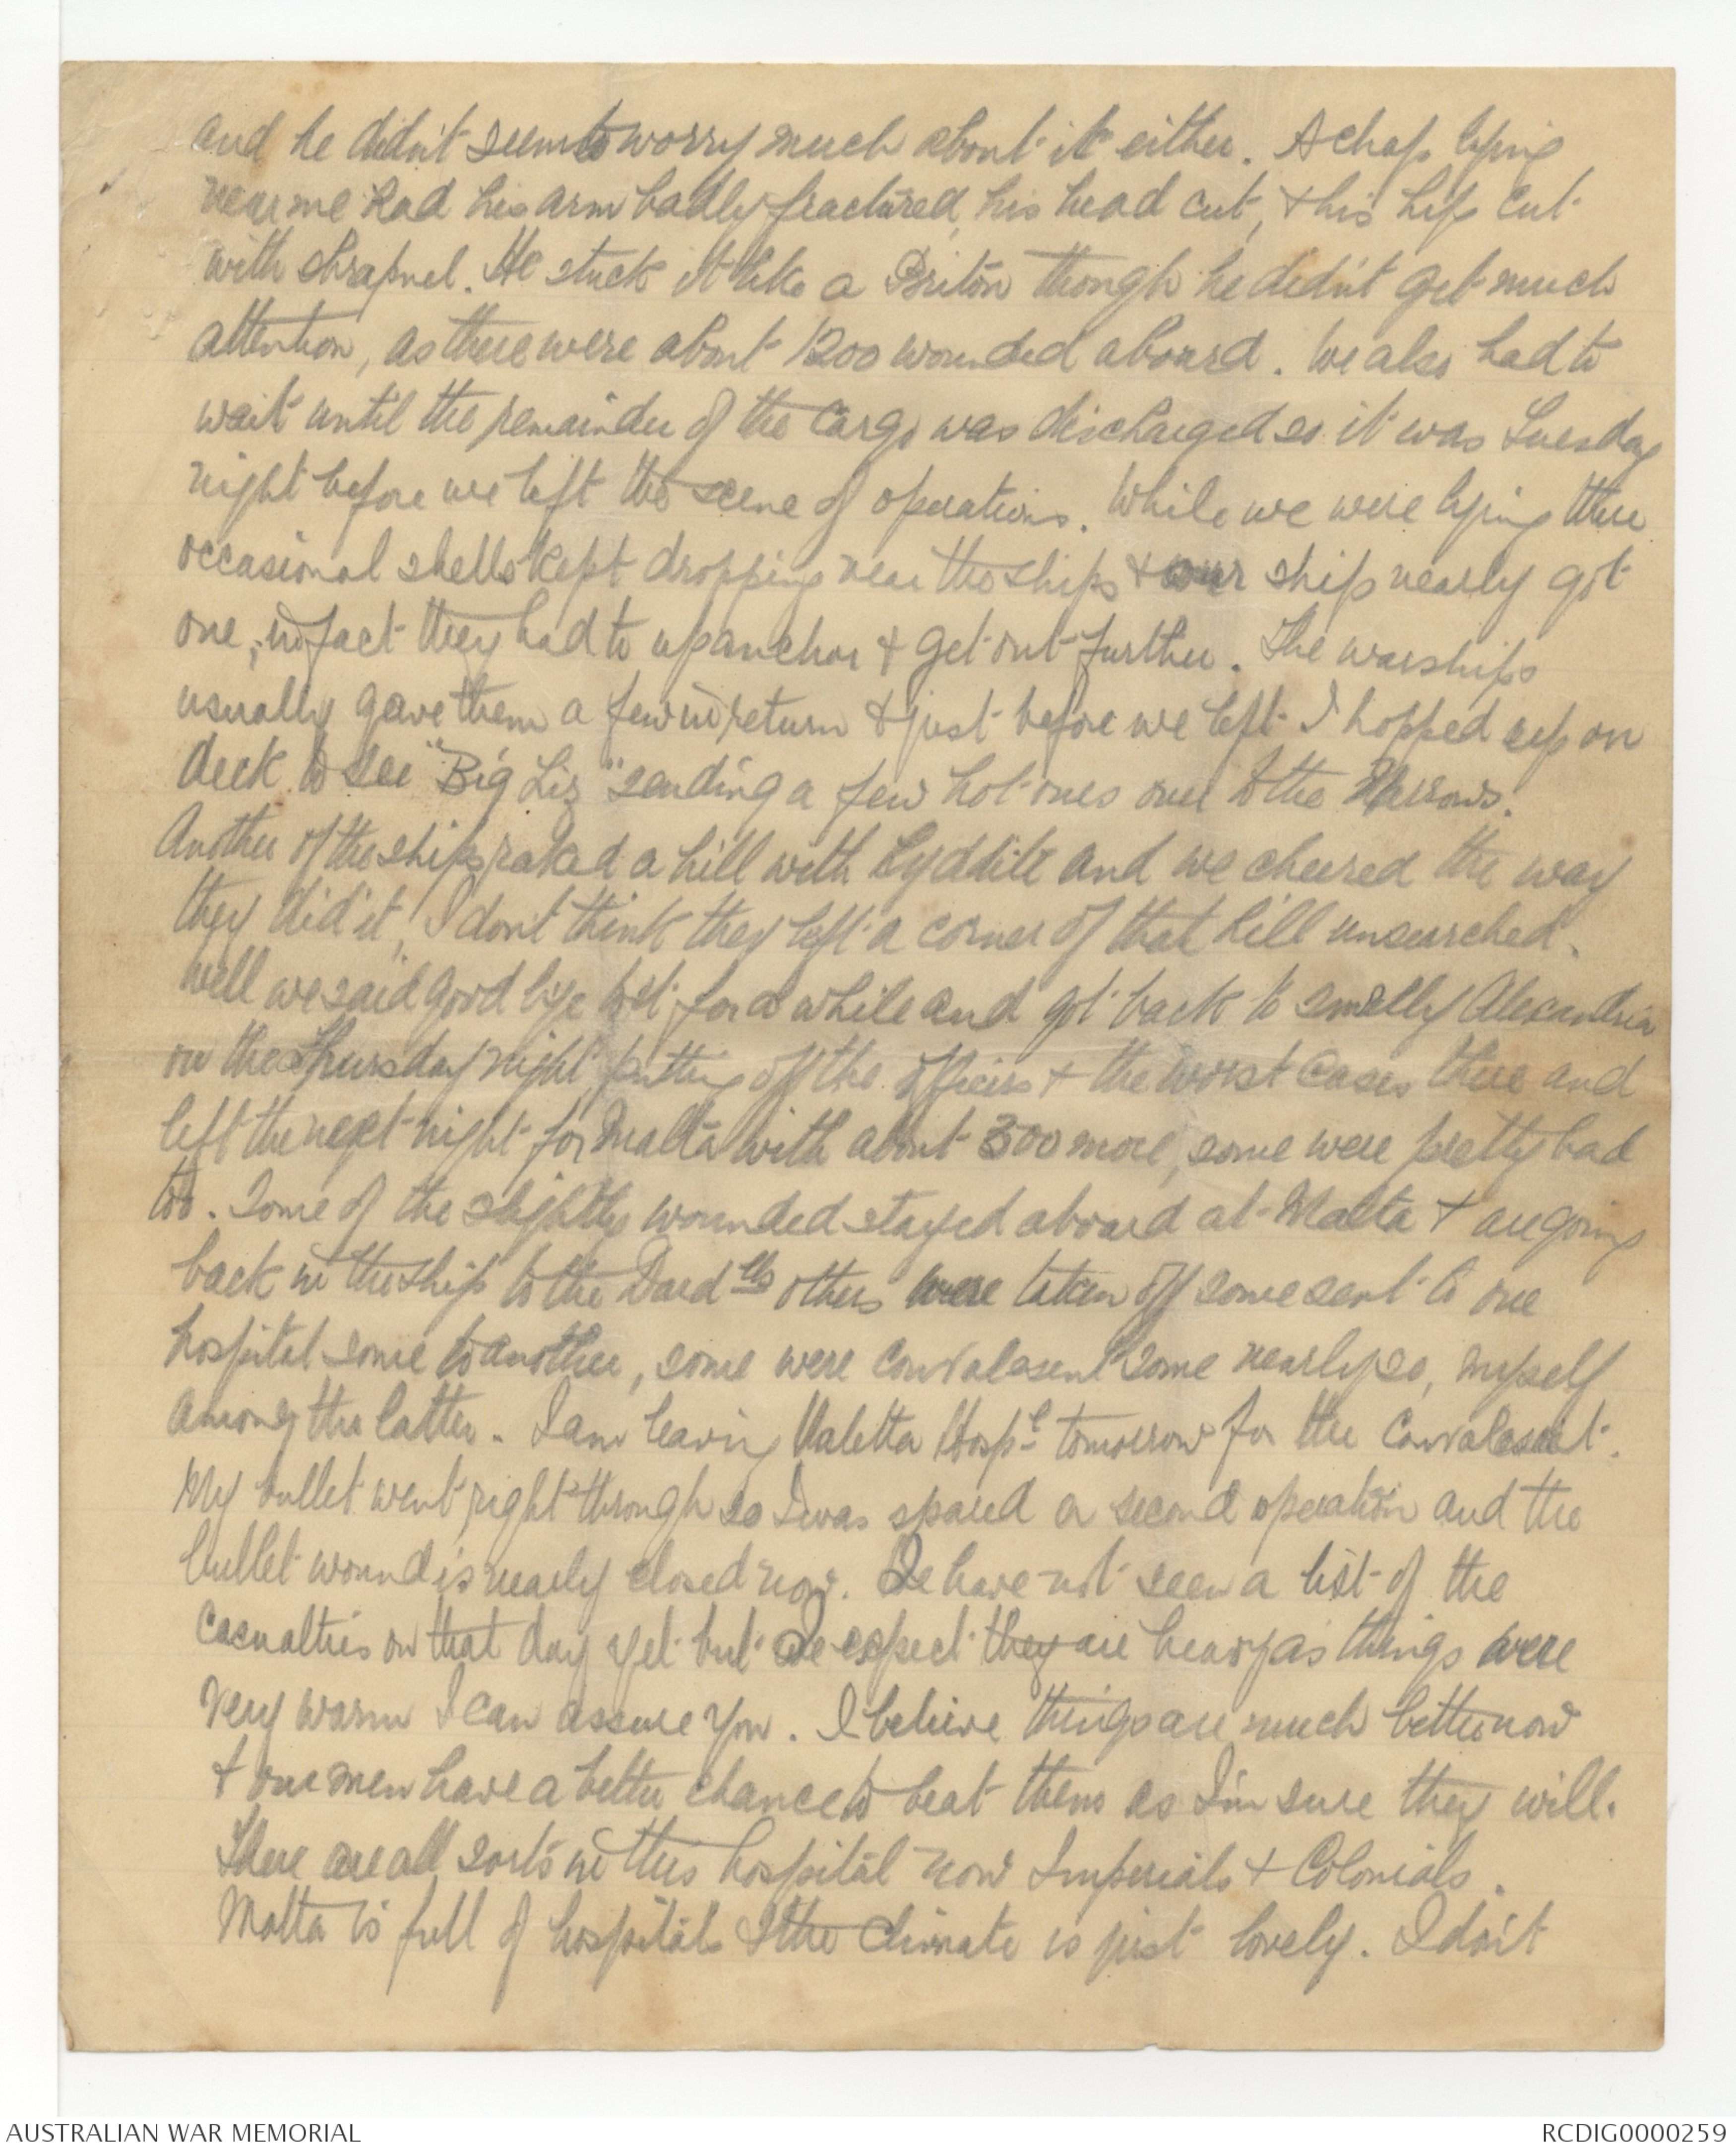 and he didn't seem to worry much about it either. A chap lying
near me had his arm badly fractured, his head cut, & his hip cut
with shrapnel. He stuck it like a Briton though he didn't get much
attention, as there were about 1200 wounded aboard. We also had to
wait until the remainder of the cargo was discharged so it was Tuesday
night before we left the scene of operations. While we were lying there
occasional shells kept dropping near the ships & our ship nearly got
one, in fact they had to up anchor & get out further. The warships
usually gave them a few in return & just before we left I hopped up on
deck to see "Big Liz" sending a few hot ones over to the Narrows.
Another of the ships raked a hill with Lyddite and we cheered the way
they did it, I dont think they left a corner of that hill unsearched.
Well we said good bye to it for a while and got back to smelly Alexandria
on the Thursday night putting off the officers & the worst cases there and
left the next night for Malta with about 300 more, some were pretty bad
too. Some of the slightly wounded stayed aboard at Malta & are going
back in the ship to the Dardlls others were taken off some sent to one
hospital some to another, some were convalesent some nearly so, myself
among the latter. I am leaving Valetta Hospl tomorrow for the Convalescent.
My bullet went right through so I was spared a second operation and the
bullet wound is nearly closed now. We have not seen a list of the
casualties on that day yet but we expect they are heavy as things were
very warm I can assure you. I believe things are much better now
& our men have a better chance to beat them as I'm sure they will.
There are all sorts in this hospital now Imperials & Colonials.
Malta is full of hospitals & the climate is just lovely. I don't
AUSTRALIAN WAR MEMORIAL
RCDIG0000259